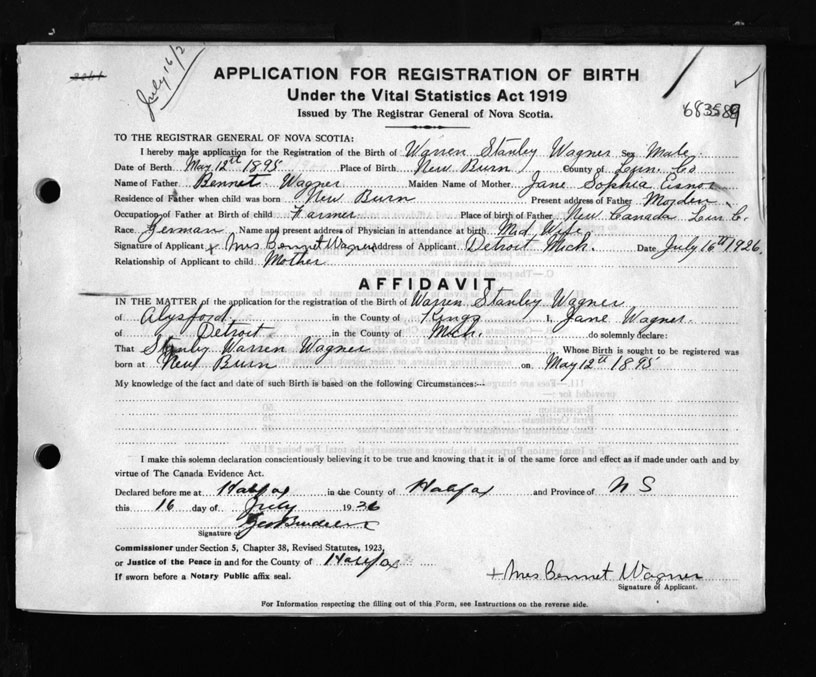 July 16/2
APPLICATION FOR REGISTRATION OF BIRTH
Under the Vital Statistics Act 1919
Issued by The Registrar General of Nova Scotia.
TO THE REGISTRAR GENERAL OF NOVA SCOTIA:
I hereby make application for the Registration of the Birth of Warren Stanley Wagner Sex Male
Date of Birth May 12th 1895 Place of Birth New Burn County of Lun. Co
Name of Father Bennet Wagner Maiden Name of Mother Jane Sophia
Residence of Father when child was born New Burn Present address of Father
Occupation of Father at Birth of child Farmer Place of birth of Father New Canada Lun C.
Race German Name and present address of Physician in attendance at birth Mid Wife
Signature of Applicant + Mrs Bennet Wagner Address of Applicant Detroit Mich. Date July 16th 1926.
Relationship of Applicant to child Mother
AFFIDAVIT
IN THE MATTER of the application for the registration of the Birth of Warren Stanley Wagner
of Alysford, in the County of Kings I, Jane Wagner
of Detroit in the County of Mich. do solemnly declare:
That Stanley Warren Wagner Whose Birth is sought to be registered was
born at New Burn on May 12th 1895
My knowledge of the fact and date of such Birth is based on the following Circumstances:--
I make this solemn declaration conscientiously believing it to be true and knowing that it is of the same force and effect as if made under oath and by
virtue of The Canada Evidence Act.
Declared before me at Halifax in the County of Halifax and Province of N S
this 16 day of July 1926
Signature of
Commissioner under Section 5, Chapter 38, Revised Statutes, 1923,
or Justice of the Peace in and for the County of Halifax
If sworn before a Notary Public affix seal.
+ Mrs Bennet Wagner
Signature of Applicant.
For Information respecting the filling out of this Form, see Instructions on the reverse side.